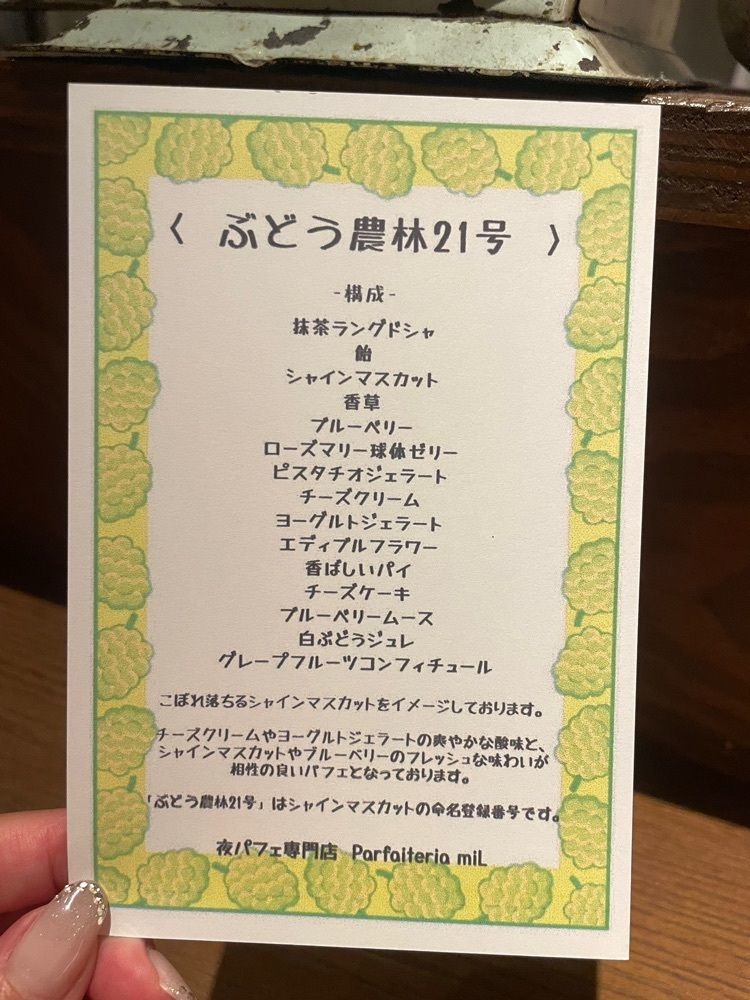 〈 ぶどう農林21号 〉
-構成-
抹茶ラングドシャ
飴
シャインマスカット
香草
ブルーベリー
ローズマリー球体ゼリー
ピスタチオジェラート
チーズクリーム
ヨーグルトジェラート
エディブルフラワー
香ばしいパイ
チーズケーキ
ブルーベリームース
白ぶどうジュレ
グレープフルーツコンフィチュール
こぼれ落ちるシャインマスカットをイメージしております。
チーズクリームやヨーグルトジェラートの爽やかな酸味と、
シャインマスカットやブルーベリーのフレッシュな味わいが
相性の良いパフェとなっております。
「ぶどう農林21号」はシャインマスカットの命名登録番号です。
夜パフェ専門店 Parfaiteria miL